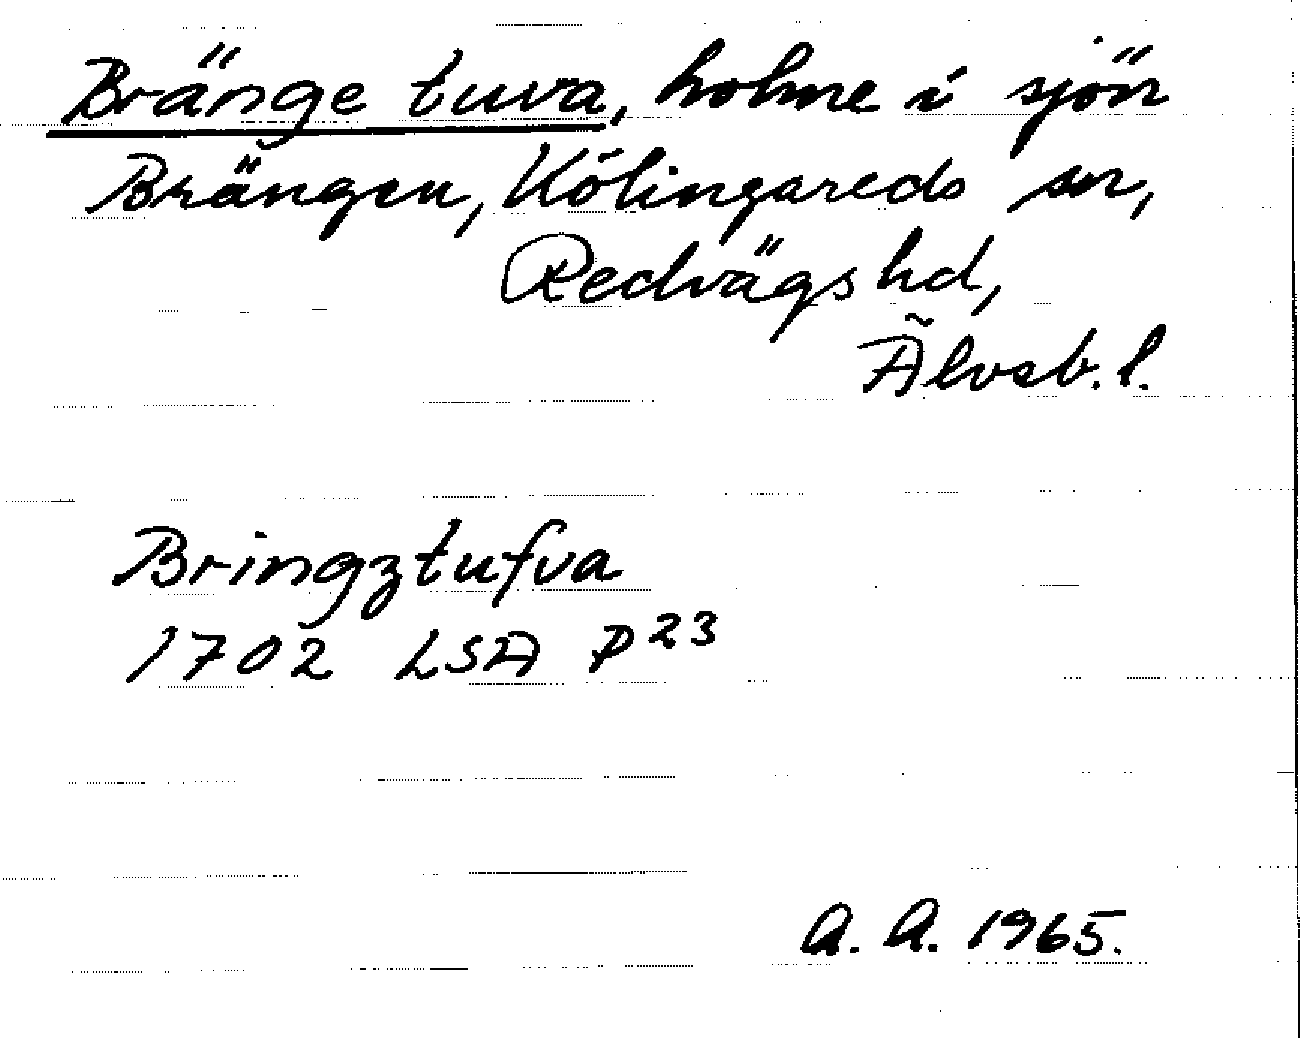 Bränge tuva, holme i sjön
Brängen, Kölingareds sn,
Redvägs hd,
Älvsb. l.
Bringztufva
1702 LSA P23
A. A. 1965.